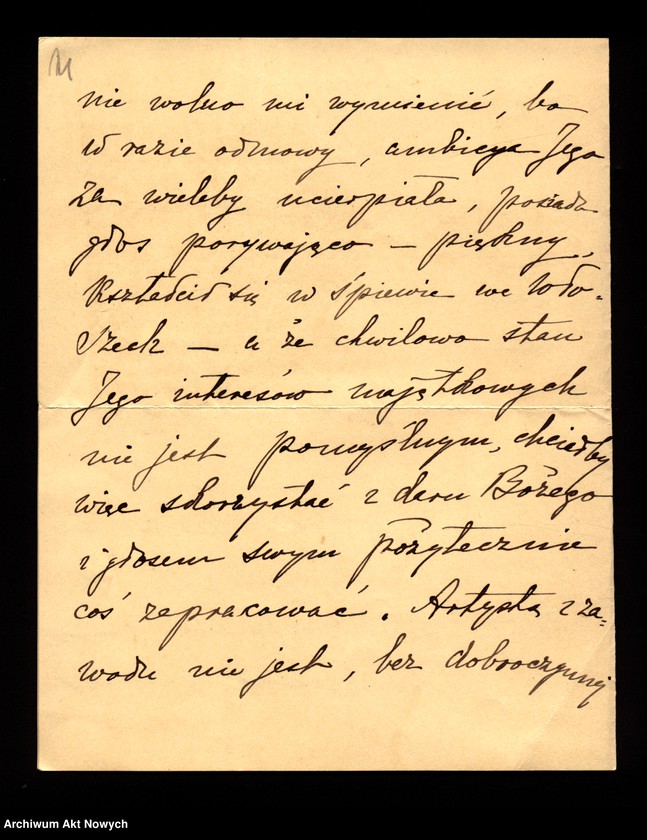 nie wolno mi wymienić, bo
w razie odmowy, ambicya Jego
za wieleby ucierpiała, posiada
głos porywająco – piękny,
Kształcił się w śpiewie we Wło-
szech – a że chwilowo stan
Jego interesów majątkowych
nie jest pomyślnym, chciałby
więc skorzystać z daru Bożego
i głosem swym pożytecznie
coś zapracować. Artystą z za=
wodu nie jest, bez dobroczynnej
Archiwum Akt Nowych